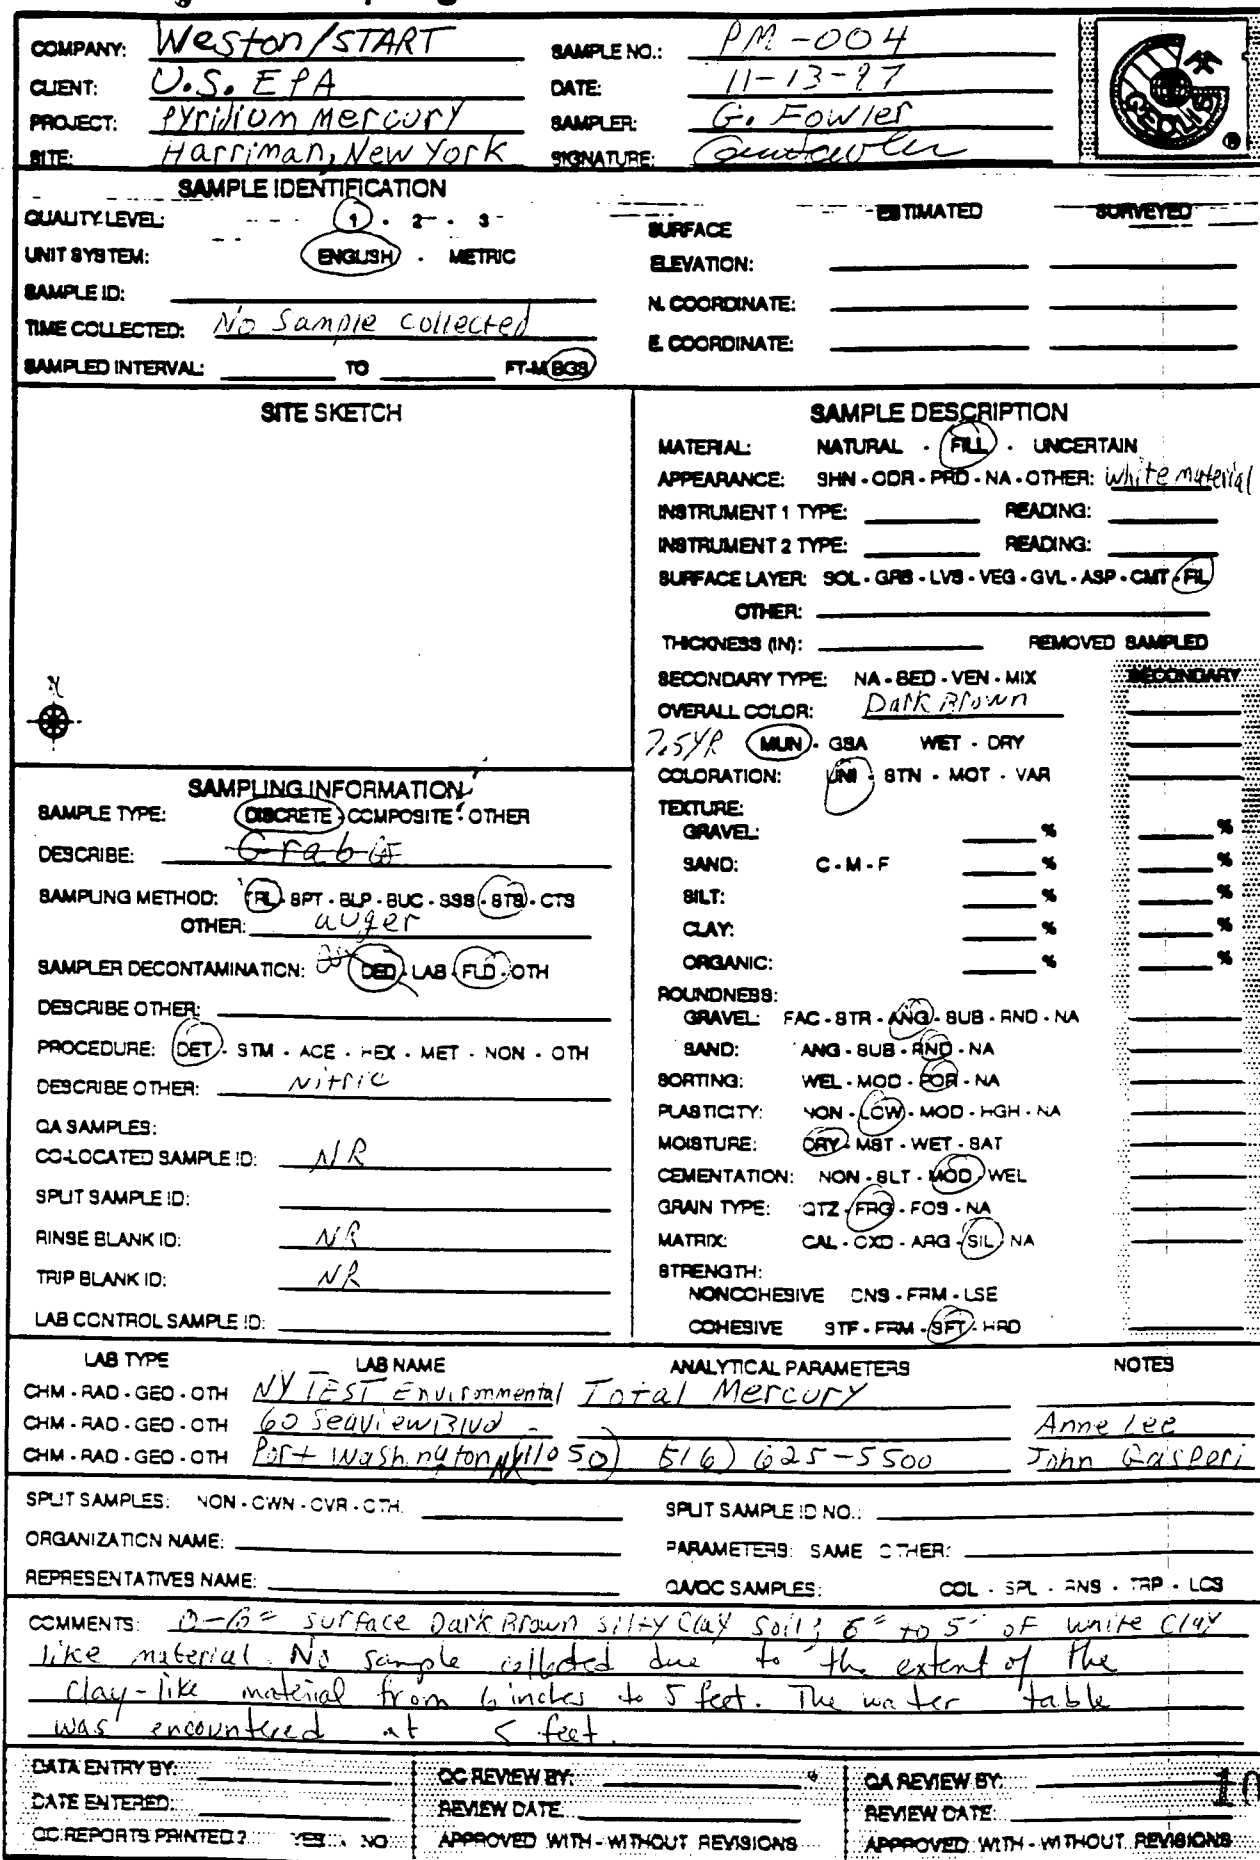 COMPANY: Weston/START SAMPLE NO.: PM-004
CLIENT: U.S. EPA DATE: 11-13-97
PROJECT: Pyridium Mercury SAMPLER: G. Fowler
SITE: Harriman, New York SIGNATURE:
GEOLIS ®
SAMPLE IDENTIFICATION
QUALITY LEVEL: 1 - 2 - 3
UNIT SYSTEM: ENGLISH - METRIC
SAMPLE ID:
TIME COLLECTED: No Sample Collected
SAMPLED INTERVAL: TO FT-M BGS
ESTIMATED SURVEYED
SURFACE
ELEVATION:
N. COORDINATE:
E. COORDINATE:
SITE SKETCH
N
SAMPLING INFORMATION
SAMPLE TYPE: DISCRETE - COMPOSITE - OTHER
DESCRIBE: Grab GF
SAMPLING METHOD: TRL - SPT - BLP - BUC - SSS - STS - CTS
OTHER: auger
SAMPLER DECONTAMINATION: DED - LAB - FLD - OTH
DESCRIBE OTHER:
PROCEDURE: DET - STM - ACE - HEX - MET - NON - OTH
DESCRIBE OTHER: Nitric
QA SAMPLES:
CO-LOCATED SAMPLE ID: NR
SPLIT SAMPLE ID:
RINSE BLANK ID: NR
TRIP BLANK ID: NR
LAB CONTROL SAMPLE ID:
SAMPLE DESCRIPTION
MATERIAL: NATURAL - FILL - UNCERTAIN
APPEARANCE: SHN - ODR - PRD - NA - OTHER: White material
INSTRUMENT 1 TYPE: READING:
INSTRUMENT 2 TYPE: READING:
SURFACE LAYER: SOL - GRS - LVS - VEG - GVL - ASP - CMT - FIL
OTHER:
THICKNESS (IN): REMOVED SAMPLED
SECONDARY TYPE: NA - BED - VEN - MIX SECONDARY
OVERALL COLOR: Dark Brown
7.5YR MUN - GSA WET - DRY
COLORATION: UNI - STN - MOT - VAR
TEXTURE:
GRAVEL: % %
SAND: C - M - F % %
SILT: % %
CLAY: % %
ORGANIC: % %
ROUNDNESS:
GRAVEL: FAC - STR - ANG - SUB - RND - NA
SAND: ANG - SUB - RND - NA
SORTING: WEL - MOD - POR - NA
PLASTICITY: NON - LOW - MOD - HGH - NA
MOISTURE: DRY - MST - WET - SAT
CEMENTATION: NON - SLT - MOD - WEL
GRAIN TYPE: QTZ - FRG - FOS - NA
MATRIX: CAL - OXD - ARG - SIL - NA
STRENGTH:
NONCOHESIVE DNS - FRM - LSE
COHESIVE STF - FRM - SFT - HRD
LAB TYPE LAB NAME ANALYTICAL PARAMETERS NOTES
CHM - RAD - GEO - OTH NYTEST Environmental Total Mercury
CHM - RAD - GEO - OTH 60 Seaview Blvd Anne Lee
CHM - RAD - GEO - OTH Port Washington NY (11050) 516) 625-5500 John Gasperi
SPLIT SAMPLES: NON - OWN - OVR - OTH: SPLIT SAMPLE ID NO.:
ORGANIZATION NAME: PARAMETERS: SAME OTHER:
REPRESENTATIVES NAME: QA/QC SAMPLES: COL - SPL - RNS - TRP - LCS
COMMENTS: 0-6" surface Dark Brown silty clay soil; 6" to 5' of white clay
like material. No sample collected due to the extent of the
clay-like material from 6 inches to 5 feet. The water table
was encountered at 5 feet.
DATA ENTRY BY: QC REVIEW BY: QA REVIEW BY:
DATE ENTERED: REVIEW DATE: REVIEW DATE:
QC REPORTS PRINTED? YES NO APPROVED WITH - WITHOUT REVISIONS APPROVED WITH - WITHOUT REVISIONS
10